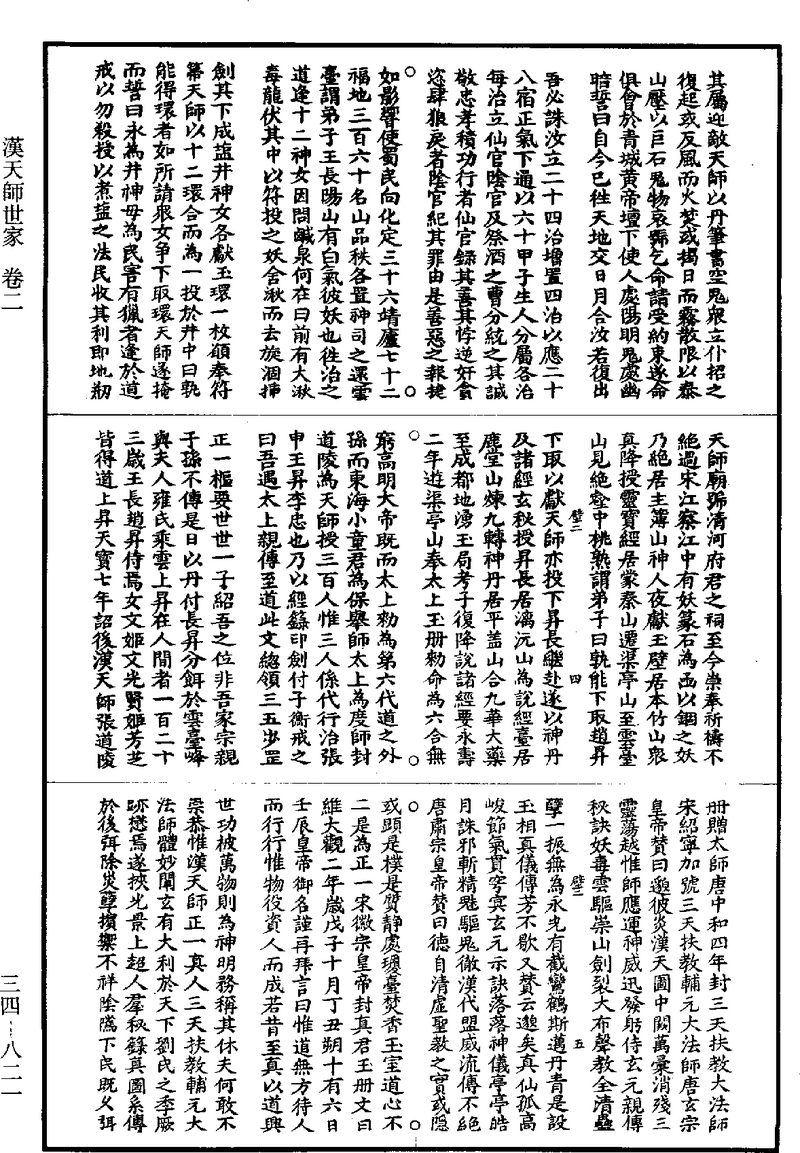 漢天師世家　卷二
三四—八二一
其屬迎敵天師以丹筆書空鬼眾立仆招之
復起或反風而火焚或揭日而霧散限以泰
山壓以巨石鬼物哀號乞命請受約束遂命
俱會於青城黃帝壇下使人處陽明鬼處幽
暗誓曰自今已往天地交日月合汝若復出
吾必誅汝立二十四治增置四治以應二十
八宿正氣下通以六十甲子生人分屬各治
每治立仙官陰官及祭酒之曹分統之其誠
敬忠孝積功行者仙官錄其善其悖逆奸貪
恣肆狼戾者陰官紀其罪由是善惡之報捷
如影響使蜀民向化定三十六靖廬七十二
福地三百六十名山品秩各置神司之還雲
臺謂弟子王長陽山有白氣彼妖也往治之
道逢十二神女因問鹹泉何在曰前有大湫
毒龍伏其中以符投之妖舍湫而去旋涸插
劍其下成鹽井神女各獻玉環一枚願奉符
箒天師以十二環合而為一投於井中曰孰
能得環者如所請眾女爭下取環天師遂掩
而誓曰永為井神毋為民害有獵者逢於道
戒以勿殺授以煮鹽之法民收其利即地刱
天師廟號清河府君之祠至今崇奉祈禱不
絕過宋江察江中有妖篆石為函以錮之妖
乃絕居主簿山神人夜獻玉璧居本竹山眾
真降授靈寶經居蒙秦山遷渠亭山至雲臺
山見絕壑中桃熟謂弟子曰孰能下取趙昇
璧二　四
下取以獻天師亦投下昇長繼赴遂以神丹
及諸經玄秘授昇長居漓沅山為說經臺居
鹿堂山煉九轉神丹居平盖山合九華大藥
至成都地湧玉局老子復降說諸經要永壽
二年遊渠亭山奉太上玉冊勑命為六合無
窮高明大帝既而太上勑為第六代道之外
孫而東海小童君為保舉師太上為度師封
道陵為天師授三百人惟三人係代行治張
申王昇李忠也乃以經籙印劍付子衡戒之
曰吾遇太上親傳至道此文總領三五步罡
正一樞要世世一子紹吾之位非吾家宗親
子孫不傳是日以丹付長昇分餌於雲臺峰
與夫人雍氏乘雲上昇在人間者一百二十
三歲王長趙昇侍焉女文姬文光賢姬芳芝
皆得道上昇天寶七年詔後漢天師張道陵
冊贈太師唐中和四年封三天扶教大法師
宋紹寧加號三天扶教輔元大法師唐玄宗
皇帝贊曰邈彼炎漢天圖中闕萬彙消殘三
靈蕩越惟師應運神威迅發躬侍玄元親傳
秘訣妖毒雲驅崇山劍裂大布聲教全清蠱
璧二　五
孽一振無為永光有截鸞鶴斯邁丹青是設
玉相真儀傳芳不歇又贊云邈矣真仙孤高
峻節氣貫穹冥玄元示訣落落神儀亭亭皓
月誅邪斬精魅驅鬼徹漢代盟威流傳不絕
唐肅宗皇帝贊曰德自清虛聖教之實或隱
或顯是樸是質靜處瓊臺焚香玉室道心不
二是為正一宋徽宗皇帝封真君玉冊文曰
維大觀二年歲戊子十月丁丑朔十有六日
壬辰皇帝御名謹再拜言曰惟道無方待人
而行行惟物役資人而成若昔至真以道興
世功被萬物則為神明務稱其休天何敢不
崇恭惟漢天師正一真人三天扶教輔元大
法師體妙闡玄有大利於天下劉民之季厥
跡懋焉遂挾光景上超人羣秘籙真圖系傳
於後弭除炎孽擯禦不祥陰隲下民既乂弭